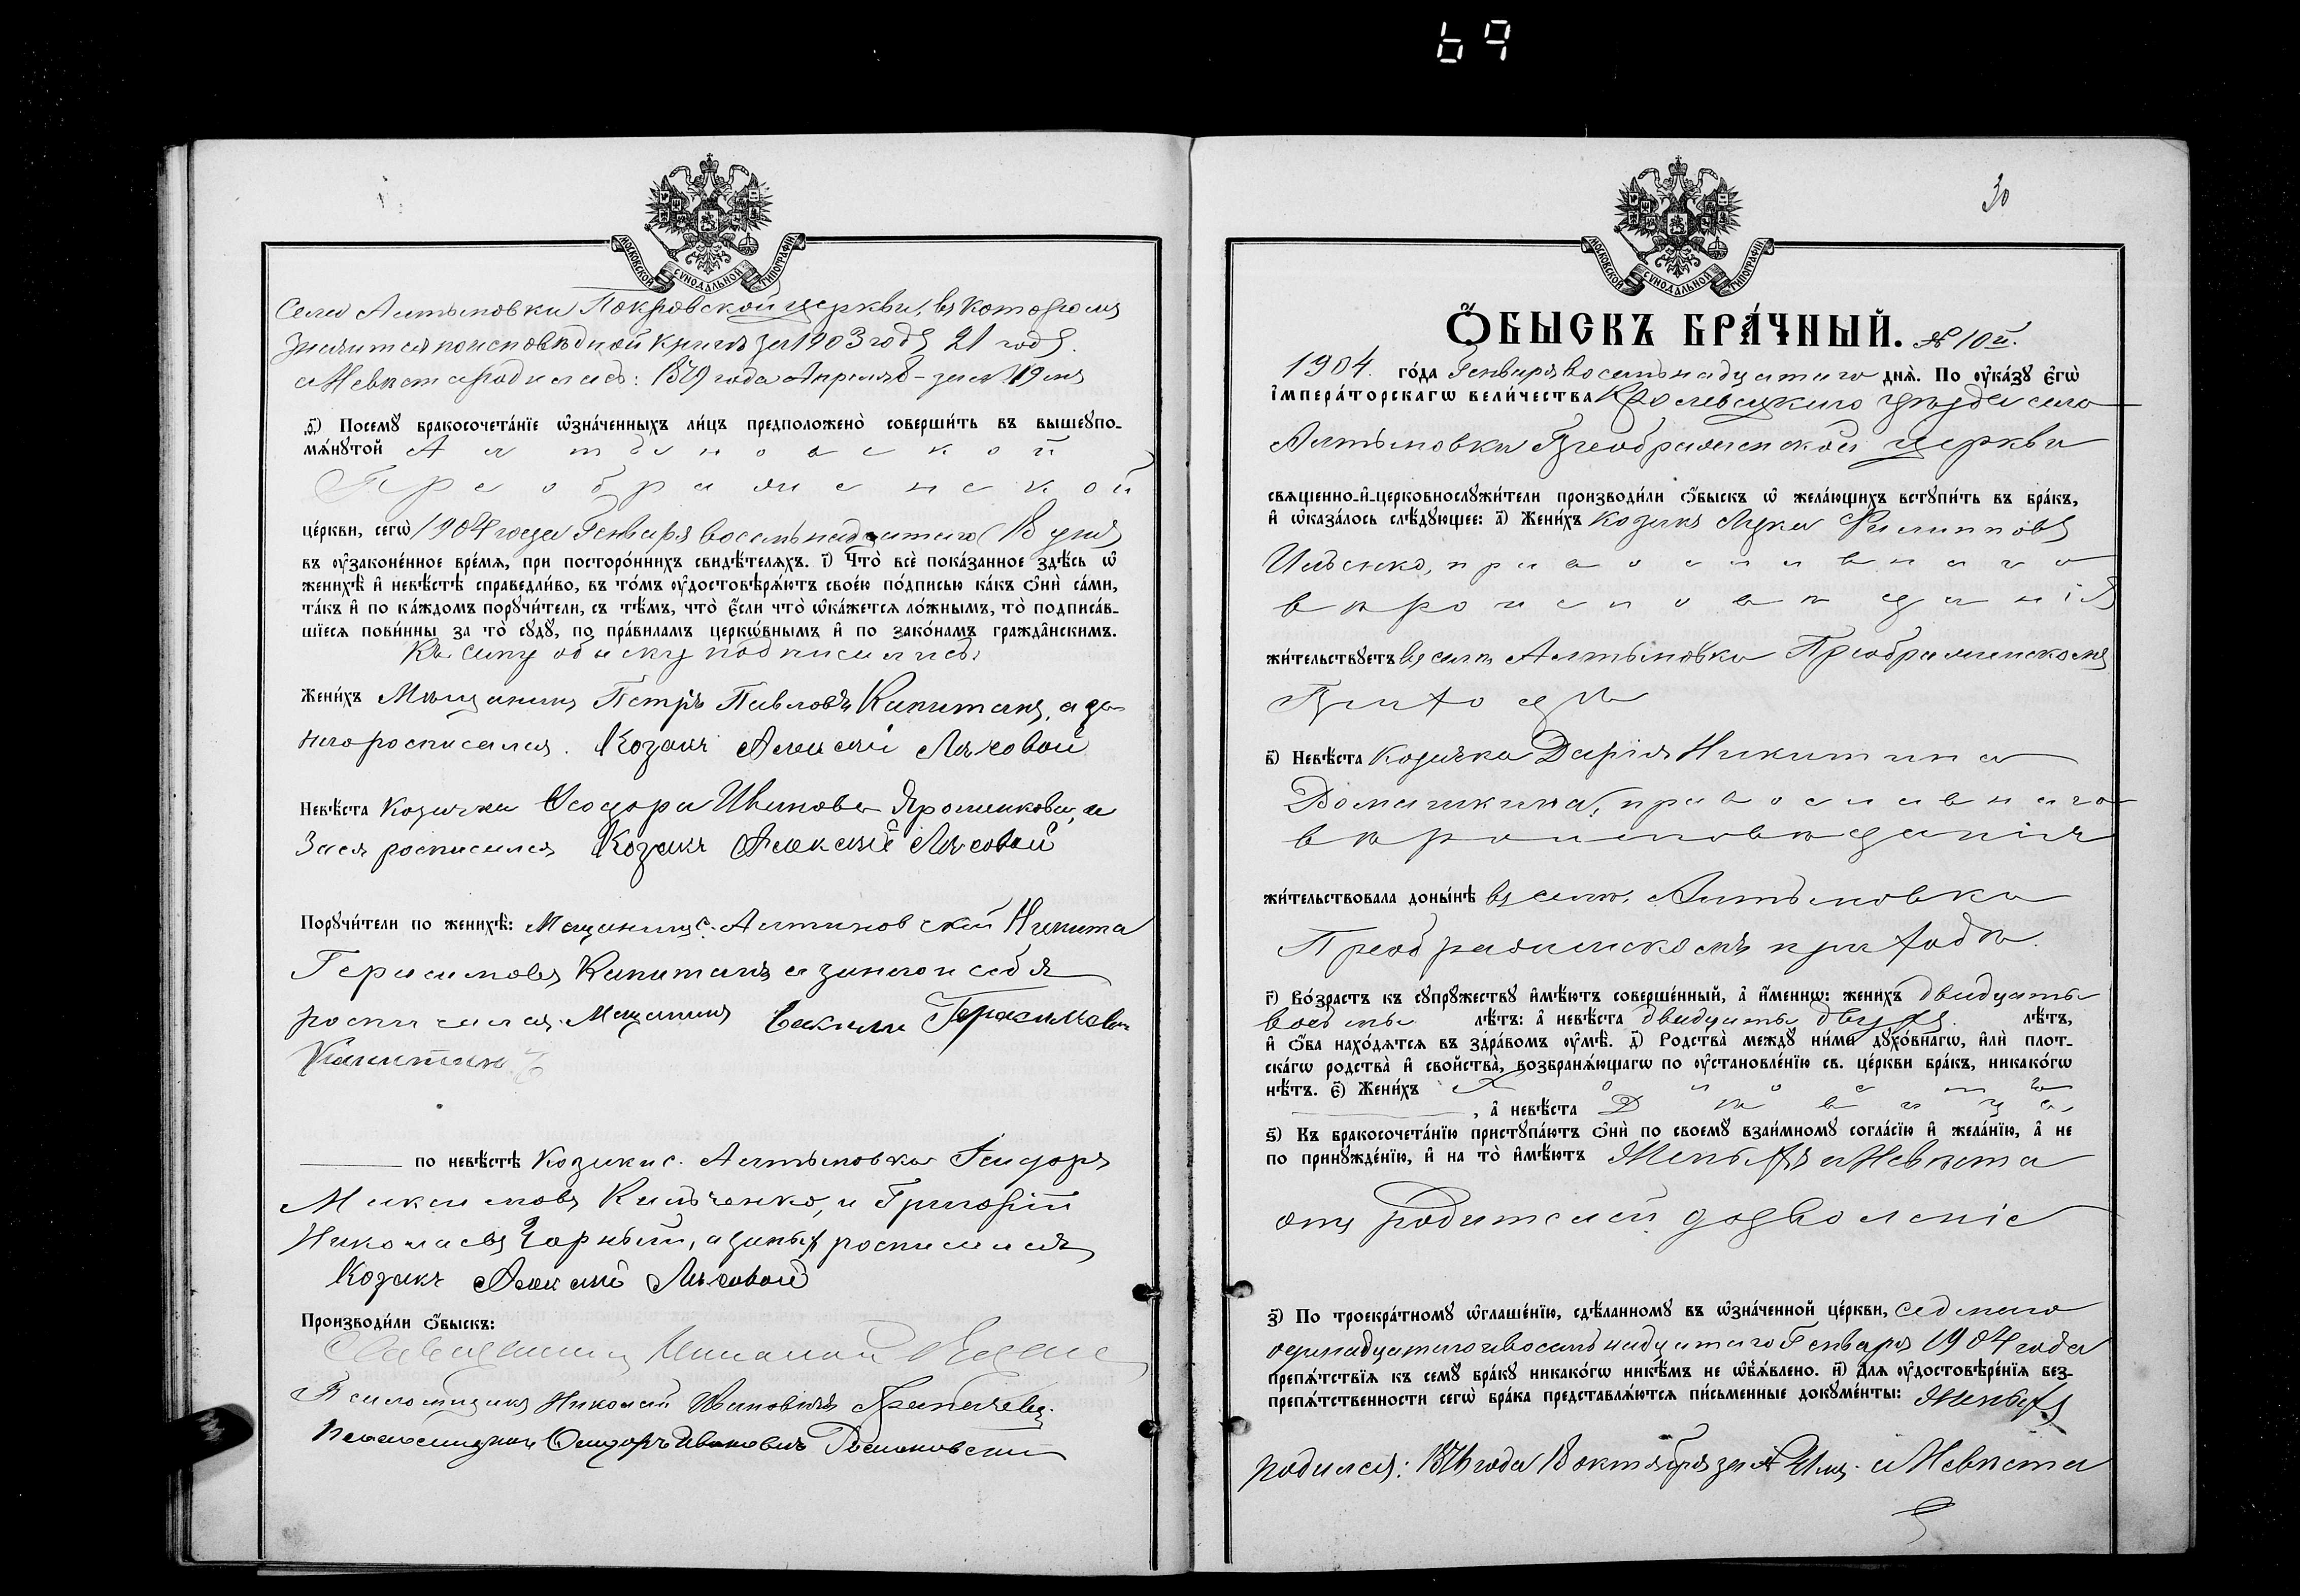 69
МОСКОВСКОЙ СѴНОДАЛЬНОЙ ТИПОГРАФІИ
Села Алтыновки Покровской церкви, въ котором
значится по исповѣдной книгѣ за 1903 годъ 21 годъ.
а Невѣста родилась: 1879 года Апреля 8 - за № 19 мъ
ѳ҃) Посемꙋ бракосочета́нїе ѡ҆зна́ченныхъ ли́цъ предположено̀ соверши́ть въ вышеꙋпо-
мѧ́нꙋтой Алтыновской
Преображенской
це́ркви, сегѡ̀ 1904 года Генваря восемьнадцатаго (18 дня)
въ ᲂу҆зако́ненное вре́мѧ, при посторо́ннихъ свидѣ́телѧхъ. і҃) Что̀ всѐ пока́занное здѣ́сь ѡ҆
женихѣ̀ и҆ невѣ́стѣ справедли́во, въ то́мъ ᲂу҆достовѣрѧ́ютъ свое́ю по́дписью ка́къ ѻ҆нѝ са́ми,
та́къ и҆ по ка́ждомъ порꙋчи́тели, съ тѣ́мъ, что̀ є҆́сли что̀ ѡ҆ка́жетсѧ ло́жнымъ, то̀ подписа́в-
шїесѧ пови́нны за то̀ сꙋдꙋ̀, по пра́виламъ церкѡ́внымъ и҆ по зако́намъ гражда̑нскимъ.
Къ сему обыску подписались:
Жени́хъ Мѣщанинъ Петръ Павловъ Капитанъ, а за
него росписался. Козакъ Алексей Лѣсовой
Невѣ́ста Козачка Ѳеодора Иванова Ярошенкова, а
за ея росписался Козакъ Алексей Лѣсовой
Порꙋчи́тели по женихѣ̀: Мещанинъ с. Алтиновской Никита
Герасимовъ Капитанъ а за него и себя
росписался. Мещанинъ Василий Герасимовъ
Капитанъ
по невѣ́стѣ Козаки с. Алтыновки Сидоръ
Максимовъ Кильченко, и Григорій
Николаевъ Чорный, а за нихъ росписался
Козакъ Алексей Лѣсовой
Производи́ли ѻ҆́быскъ:
Священникъ Николай
Псаломщикъ Николай Ивановичъ
Псаломщикъ Ивановичъ
30
МОСКОВСКОЙ СѴНОДАЛЬНОЙ ТИПОГРАФІИ
ѺБЫСКЪ БРА́ЧНЫЙ. № 10й.
1904. го́да Генваря восемьнадцатаго днѧ̀. По ᲂу҆ка́зꙋ є҆гѡ̀
і҆мпера́торскагѡ вели́чества Кролевецкаго уѣзда села
Алтыновки Преображенской церкви
свѧщенно-и҆-церковнослꙋжи́тели производи́ли ѻ҆́быскъ ѡ҆ жела́ющихъ встꙋпи́ть въ бра́къ,
и҆ ѡ҆каза́лось слѣ́дꙋющее: а҃) Жени́хъ Козакъ Лука Филипповъ
Ильенко, православнаго
вѣроисповѣданія
жи́тельствꙋетъ въ селѣ Алтыновка Преображенскомъ
Приходѣ
в҃) Невѣ́ста Козачка Дарія Никитина
православнаго
вѣроисповѣданія
жи́тельствовала доны́нѣ въ селѣ, Алтыновка
Преображенскомъ приходѣ.
г҃) Во́зрастъ къ сꙋпрꙋ́жествꙋ и҆мѣ́ютъ соверше́нный, а҆ и҆́менно: жени́хъ двадцать
восьмь лѣ́тъ: а҆ невѣ́ста двадцать двухъ. лѣ́тъ,
и҆ ѻ҆́ба нахо́дѧтсѧ въ здра́вомъ ᲂу҆мѣ̀. д҃) Родства̀ междꙋ ни́ми дꙋхо́внагѡ, и҆лѝ плот-
ска́гѡ родства̀ и҆ свойства̀, возбранѧ́ющагѡ по ᲂу҆становле́нїю св. це́ркви бра́къ, никако́гѡ
нѣ́тъ. є҃) Жени́хъ холостъ
, а҆ невѣ́ста Дѣвица,
ѕ҃) Къ бракосочета́нїю пристꙋпа́ютъ ѻ҆нѝ по своемꙋ̀ взаи́мномꙋ согла́сїю и҆ жела́нїю, а҆ не
по принꙋжде́нїю, и҆ на то̀ и҆мѣ́ютъ Женихъ и Невѣста
отъ родителей дозволеніе
з҃) По троекра́тномꙋ ѡ҆глаше́нїю, сдѣ́ланномꙋ въ ѡ҆зна́ченной це́ркви, седмаго
одинадцатаго и восемьнадцатаго Генваря 1904 года
препѧ́тствїѧ къ семꙋ̀ бра́кꙋ никако́гѡ никѣ́мъ не ѡ҆б̾ѧ́влено. и҃) Длѧ ᲂу҆достовѣре́нїѧ без-
препѧ́тственности сегѡ̀ бра́ка представлѧ́ютсѧ пи́сьменные докꙋме́нты: Женихъ
родился: 1876 года 18 октября за № 41мъ. а Невѣста